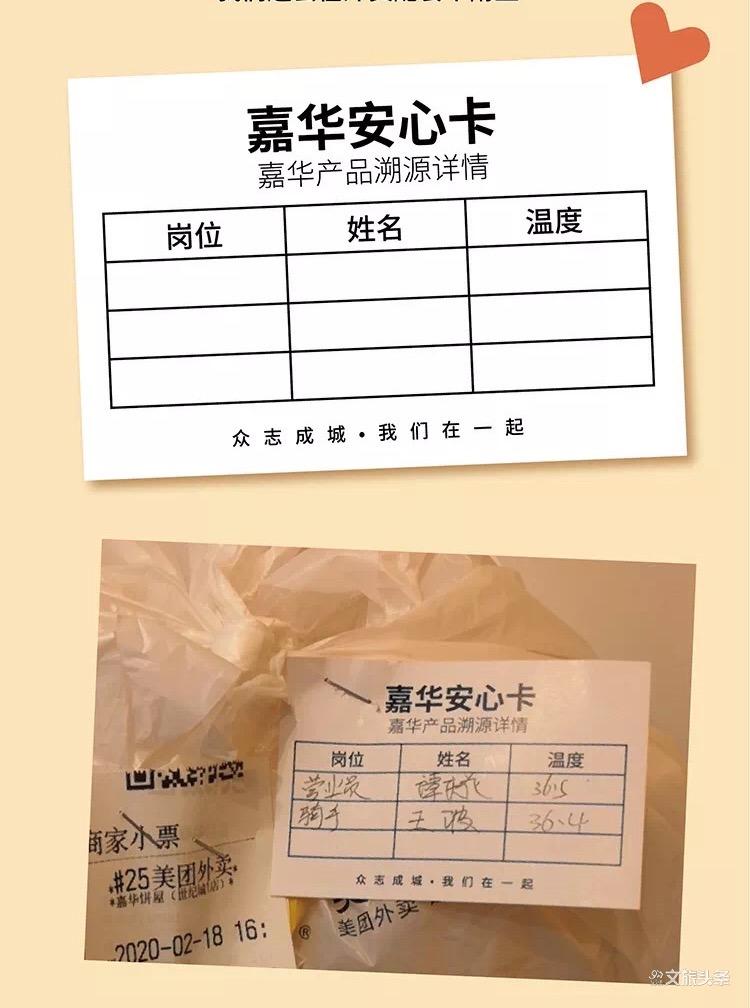 嘉华安心卡
嘉华产品溯源详情
岗位 姓名 温度
众志成城·我们在一起
嘉华安心卡
嘉华产品溯源详情
岗位 姓名 温度
营业员 36.5
骑手 王波 36.4
众志成城·我们在一起
商家小票
*#25美团外卖*
*嘉华饼屋(世纪城店)*
2020-02-18 16:
®
美团外卖
文旅头条